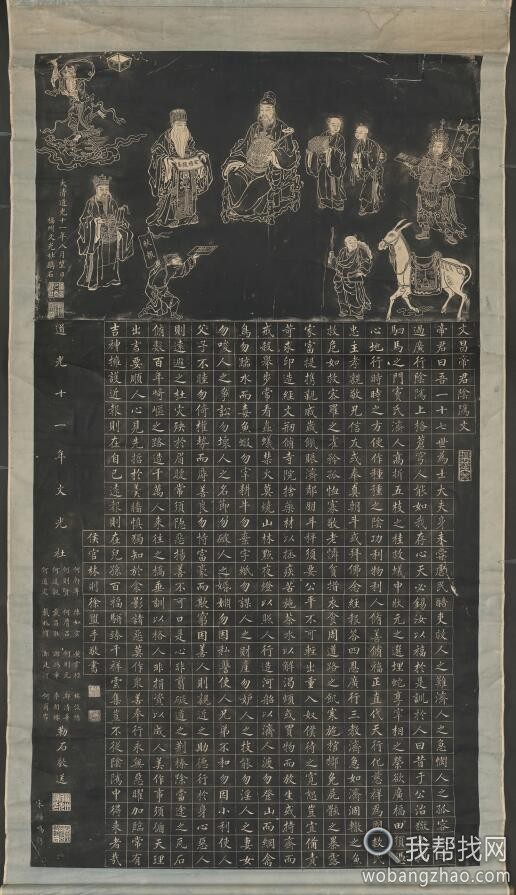 文昌帝君陰隲文
帝君曰吾一十七世為士大夫身未嘗虐民酷吏救人之難濟人之急憫人之孤容人之
過廣行陰隲上格蒼穹人能如我存心天必錫汝以福於是訓於人曰昔于公治獄大興
駟馬之門竇氏濟人高折五枝之桂救蟻中狀元之選埋蛇享宰相之榮欲廣福田須憑
心地行時時之方便作種種之陰功利物利人修善修福正直代天行化慈祥為國救民
忠主孝親敬兄信友或奉真朝斗或拜佛念經報答四恩廣行三教濟急如濟涸轍之魚
救危如救密羅之雀矜孤恤寡敬老憐貧措衣食周道路之飢寒施棺槨免屍骸之暴露
家富提攜親戚歲饑賑濟鄰朋斗秤須要公平不可輕出重入奴僕待之寬恕豈宜備責
苛求印造經文刱修寺院捨藥材以拯疾苦施茶水以解渴煩或買物而放生或持齋而
戒殺舉步常看蟲蟻禁火莫燒山林點夜燈以照人行造河船以濟人渡勿登山而網禽
鳥勿臨水而毒魚蝦勿宰耕牛勿棄字紙勿謀人之財產勿妒人之技能勿淫人之妻女
勿唆人之爭訟勿壞人之名利勿破人之婚姻勿因私讐使人兄弟不和勿因小利使人
父子不睦勿倚權勢而辱善良勿恃富豪而欺窮困善人則親近之助德行於身心惡人
則遠避之杜災殃於眉睫常須隱惡揚善不可口是心非剪礙道之荊榛除當途之瓦石
修數百年崎嶇之路造千萬人來往之橋垂訓以格人非捐資以成人美作事須循天理
出言要順人心見先哲於羹牆慎獨知於衾影諸惡莫作眾善奉行永無惡曜加臨常有
吉神擁護近報則在自己遠報則在兒孫百福駢臻千祥雲集豈不從陰隲中得來者哉
侯官林則徐盥手敬書
道光十一年文光社
勒石敬送
大清道光十一年八月望日
福州文光社鐫石
我帮找网
wobangzhao.com